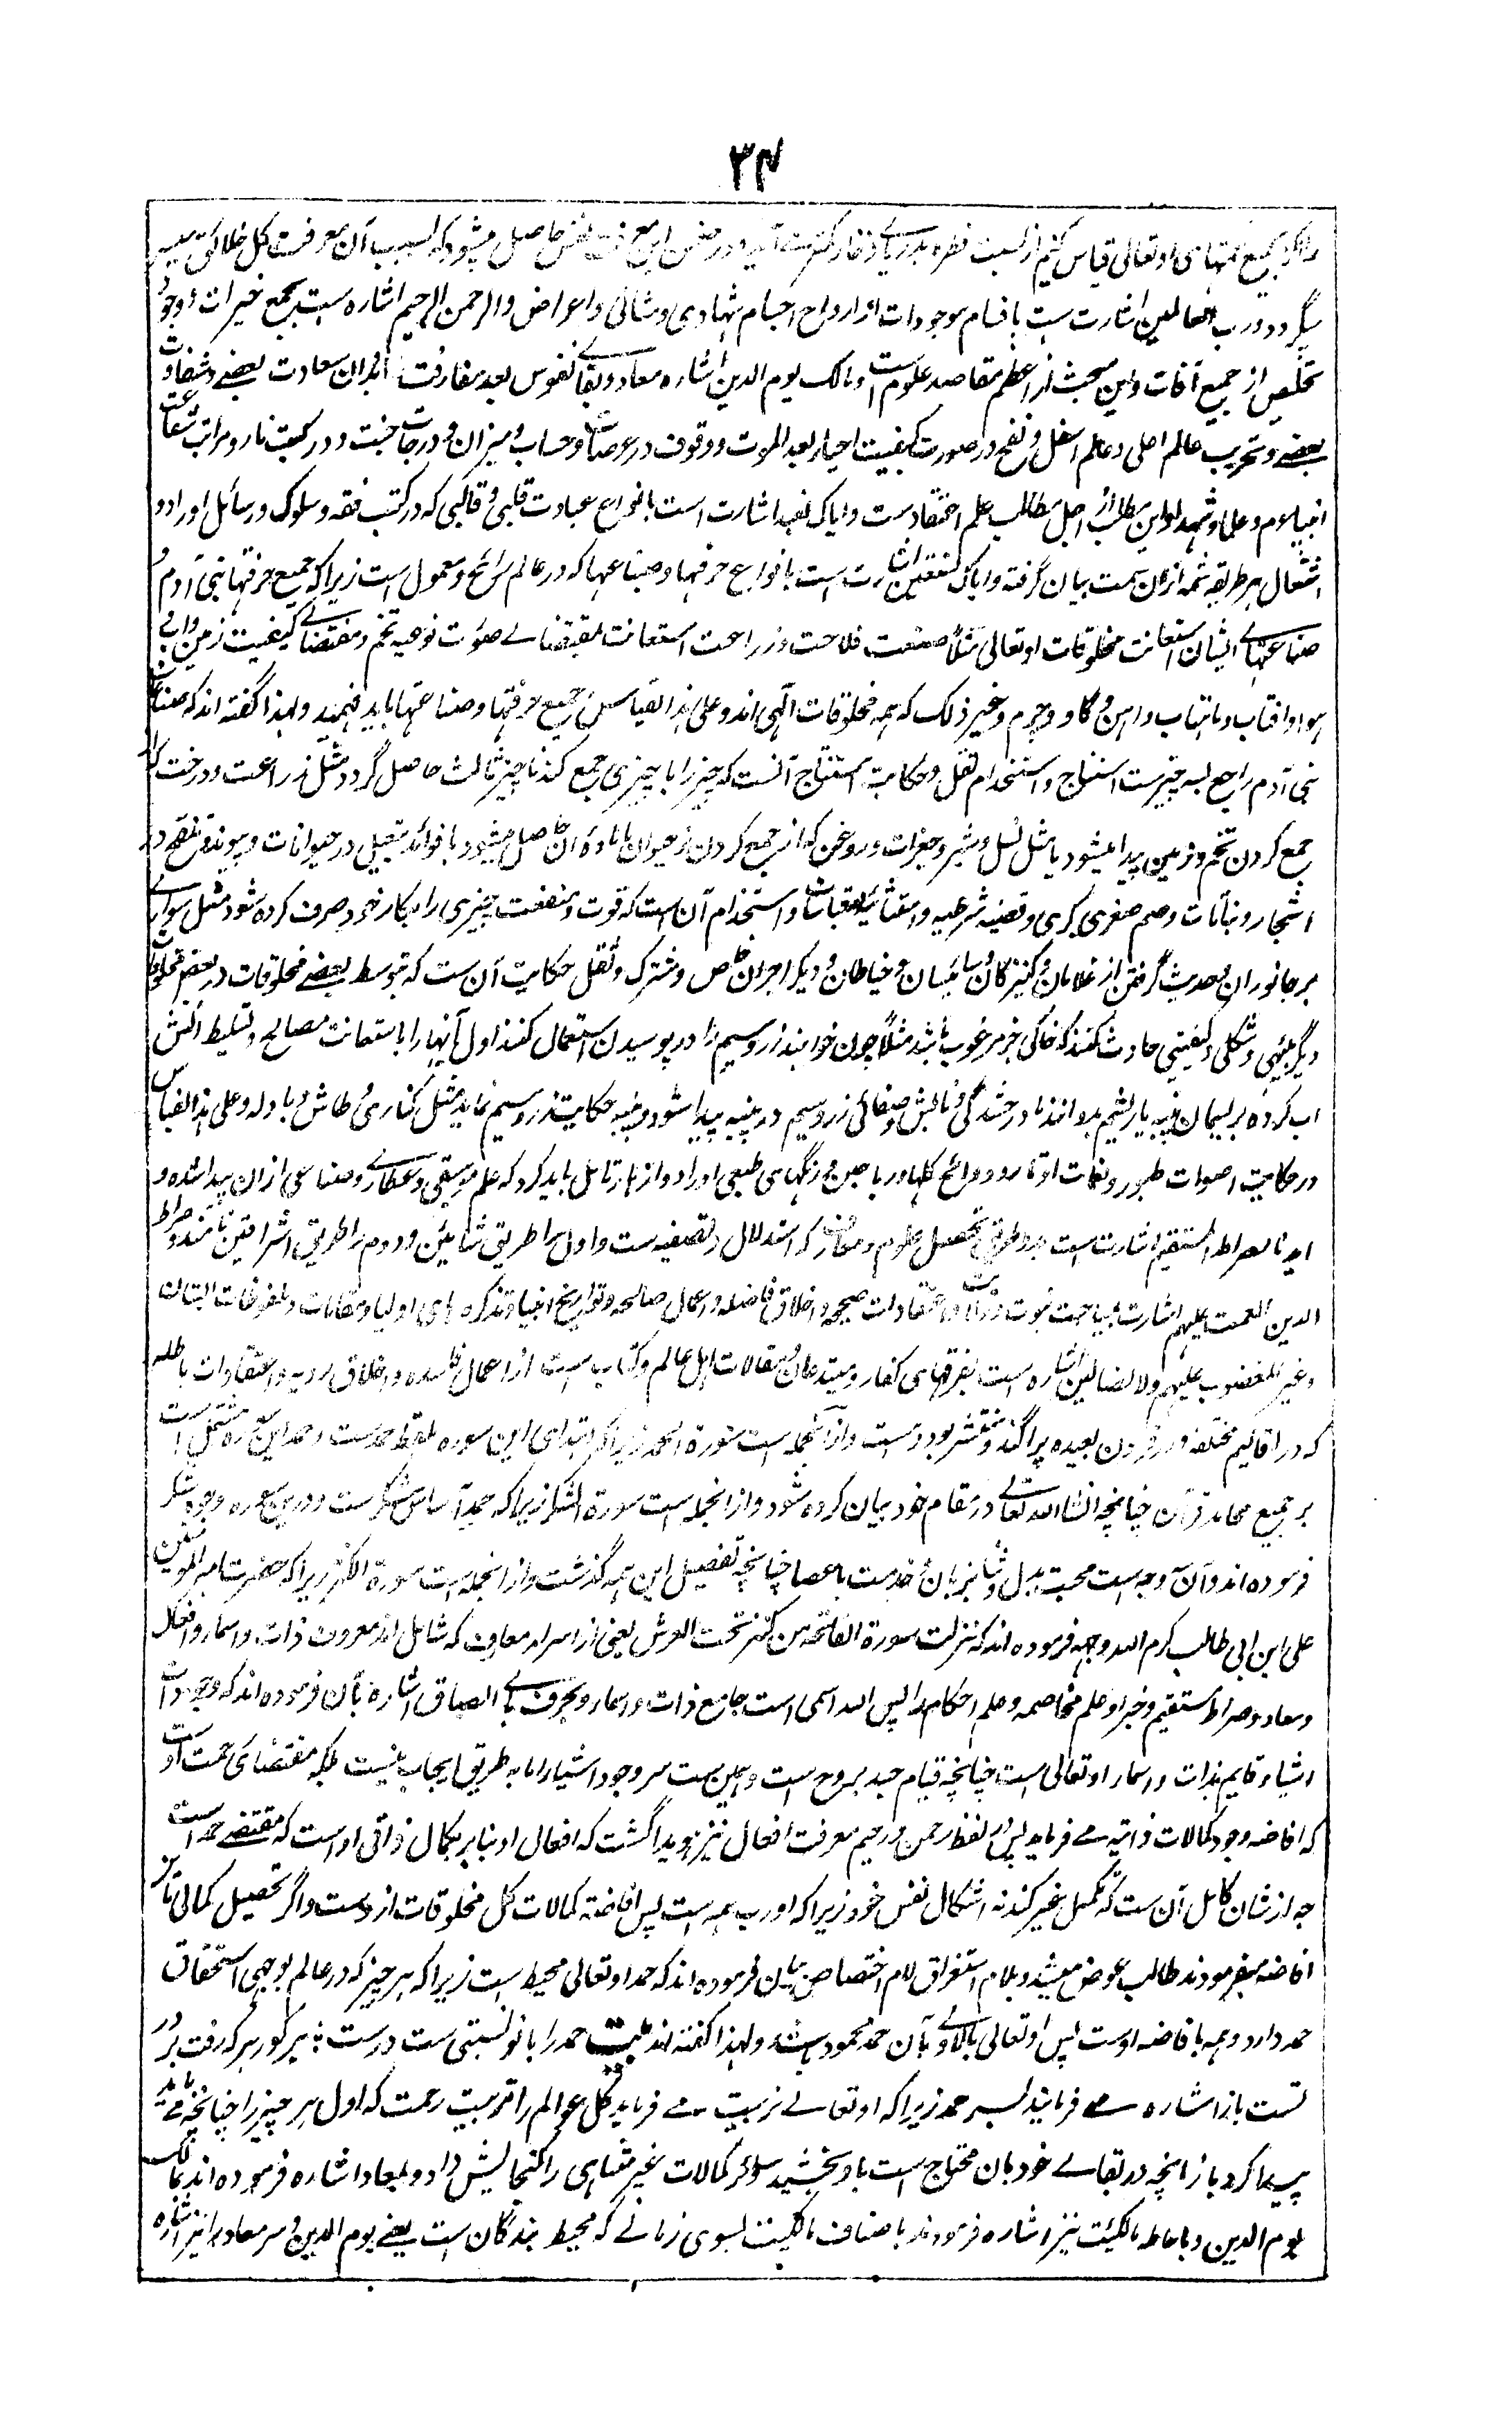 ۳۴
را اگر بجمیع نعمتهای او تعالی قیاس کنیم از نسبت قطره بدریای ذخار کمتر ست آید و در ضمن این معرفت نفس حاصل میشود که بسبب آن معرفت کل خلائق میسر
میگردد و رب العالمین اشارت ست باقسام موجودات از ارواح و اجسام شهادی و مثالی و اعراض و الرحمن الرحیم اشاره ست بجمیع خیرات و وجوه
تخلیص از جمیع آفات و این مبحث از اعظم مقاصد علوم است و مالک یوم الدین اشاره بمعاد و بقای نفوس بعد مفارقت ابدان و سعادت بعضے و شقاوت
بعضے و تخریب عالم اعلی و عالم اسفل و نفخ در صور و کیفیت احیا بعد الموت و وقوف در عرصات و حساب و میزان و درجات جنت و درکات نار و مراتب شفاعت
انبیا و علما و شهدا و این مطلب از اجل مطالب علم اعتقاد ست و ایاک نعبد اشارت است بانواع عبادت قلبی و قالبی که در کتب فقه و سلوک و رسائل اوراد و
اشغال هر طریقه شمه ازان سمت بیان گرفته و ایاک نستعین اشارت ست بانواع حرفها و صناعتها که در عالم رائج و معمول است زیرا که جمیع حرفتها بنی آدم و
صناعتهای ایشان استعانت بمخلوقات او تعالی مثلا صنعت فلاحت و زراعت استعانت بمقتضای صورت نوعیه تخم و مقتضای کیفیت زمین و آب و
هوا و آفتاب و ماهتاب و آهن و گاو و چوب و غیر ذلک که همه مخلوقات الهی اند و علی هذا القیاس جمیع حرفتها و صناعتها باید فهمید و لهذا گفته اند که صناعات
بنی آدم راجع بسه چیز ست استنتاج و استخدام و نقل و حکایت استنتاج آنست که چیزی را با چیزی جمع کند تا چیز ثالث حاصل گردد مثل زراعت و درخت که از
جمع کردن تخم و زمین پیدا میشود یا مثل نسل و شیر و جغرات و روغن که از جمع کردن نر حیوان با ماده آن حاصل میشود با فوائد تبعیلی در حیوانات و پیوند و تلقیح در
اشجار و نباتات و ضم صغری بکبری و قضیه شرطیه و استثنائیه و قیاسات و استخدام آن است که قوت و منفعت چیزی را بکار خود صرف کرده شود مثل سواری
بر جانوران و خدمت گرفتن از غلامان و کنیزکان و سائیسان و خیاطان و دیگر اجیران خاص و مشترک و نقل و حکایت آن ست که بتوسط بعضے مخلوقات در بعضے مخلوقات
دیگر هیئتی و شکلی و کیفیتی حادث کنند که خاکی چیز مرغوب باشد مثلا چون خواهند زر و سیم را در پوشیدن استعمال کنند اول آنها را باستعانت مصالح و تسلیط آتش
آب کرده بر ریسمان پنبه یا ریشم بدوانند تا درخشندگی و تابش و صفائی زر و سیم در پنبه پیدا شود و پنبه حکایت زر و سیم نماید مثل کناری و طاش و بادله و علی هذا القیاس
در حکایت اصوات طیور و نغمات اوتار و روائح گلها و ریاحین و رنگهای طبعی اوراد و ازهار تامل باید کرد که علم موسیقی و عطاری و صناعی ازان پیدا شده و
اهدنا الصراط المستقیم اشارت ست بدو طریق تحصیل علوم و معارف که استدلال و تصفیه ست و اول را طریق مشائین و دوم را طریق اشراقین نامند و صراط
الذین انعمت علیهم اشارت بمباحث نبوت و ولایت و اعتقادات صحیحه و اخلاق فاضله و اعمال صالحه و تواریخ انبیا و تذکره های اولیا و مقامات و ملفوظات ایشان
و غیر المغضوب علیهم و لا الضالین اشاره است بفرقهای کفار و مبتدعان و مقالات اهل عالم و کتاب ست از اعمال فاسده و اخلاق ردیه و اعتقادات باطله
که در اقالیم مختلفه و در قرون بعیده پراگنده و منتشر بود و است و از آنجمله است سورة الحمد زیرا که ابتدای این سوره بلفظ حمد ست و حمد این سوره مشتمل است
بر جمیع محامد قرآن چنانچه انشاء الله تعالے در مقام خود بیان کرده شود و از آنجمله ست سورة الشکر زیرا که حمد اساس شکر ست و درین سوره وجوه شکر
فرموده اند و آن سه وجه است محبت بدل و ثنا بزبان و خدمت باعضا چنانچه تفصیل این همه گذشت و از آنجمله است سورة الکنز زیرا که حضرت امیر المومنین
علی ابن ابی طالب کرم الله وجهه فرموده اند که نزلت سورة الفاتحة من کنز تحت العرش یعنی از اسرار معارف که شامل اند معرفت ذات و اسما و افعال
و معاد و صراط مستقیم و خبر و علم مخاصمه و علم احکام را پس الله اسمی است جامع ذات و اسما و بحرف بای الصاق اشاره بآن فرموده اند که وجودات
اشیاء قایم بذات و اسماء او تعالی است چنانچه قیام جسد بروح است و همین ست سر وجود اشیا را ما به طریق ایجاب نیست بلکه مقتضای رحمت اوست
که افاضه وجود کمالات ذاتیه مے فرماید پس از لفظ رحمن و رحیم معرفت افعال نیز هویدا گشت که افعال او بنابر کمال ذاتی او است که مقتضے حمد است
چه از شان کامل آن ست که تکمیل غیر کند نه استکمال نفس خود زیرا که او رب همه است پس افاضه کمالات کل مخلوقات ازوست و اگر تحصیل کمالی تا از
افاضه میفرمودند طالب عوض میشد و بلام استغراق و لام اختصاص بیان فرموده اند که حمد او تعالی محیط است زیرا که هر چیز که در عالم بوجهی استحقاق
حمد دارد و همه بافاضه اوست پس او تعالی بالاوی بآن حمد محمود باشد و لهذا گفته اند بیت حمد را با تو نسبتی ست درست ؛ بر در هر که رفت بر در
تست باز اشاره مے فرمایند بسر حمد زیرا که او تعالے تربیت مے فرماید کل عوالم را تربیت رحمت که اول هر چیز را چنانچه مے باید
پیدا کرد باز آنچه در بقاے خود بان محتاج است باو بخشید و سائر کمالات غیر متناهی را گنجایش داد و بمعاد اشاره فرموده اند مالک
یوم الدین و باحاطه مالکیت نیز اشاره فرمودند باضافت مالکیت بسوی زمانے که محیط بندگان ست یعنے یوم الدین و سر معاد را نیز اشاره